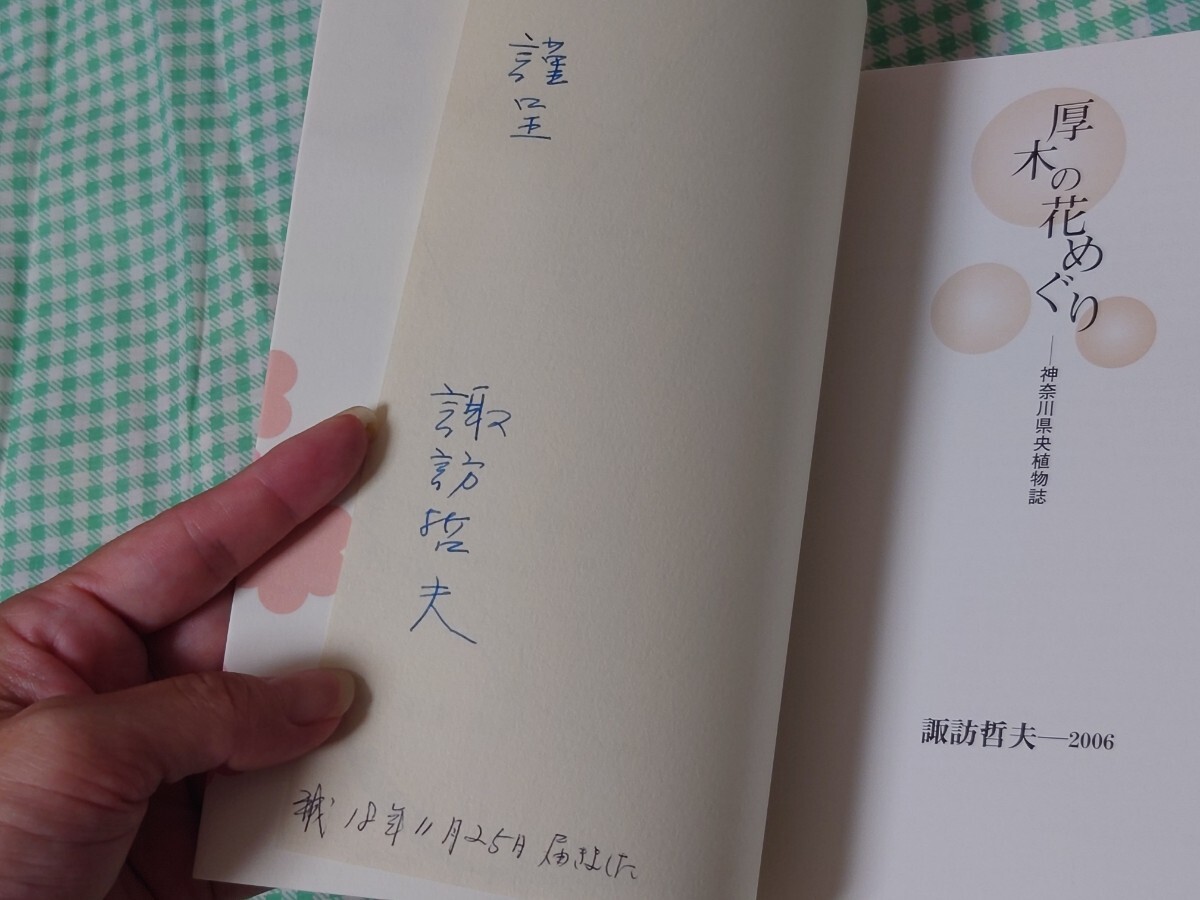 謹呈
諏訪哲夫
18年11月25日 届きました
厚木の花めぐり
──神奈川県央植物誌
諏訪哲夫──2006